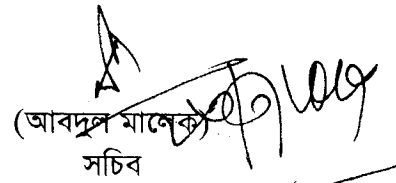 (আবদুল মালেক)
সচিব